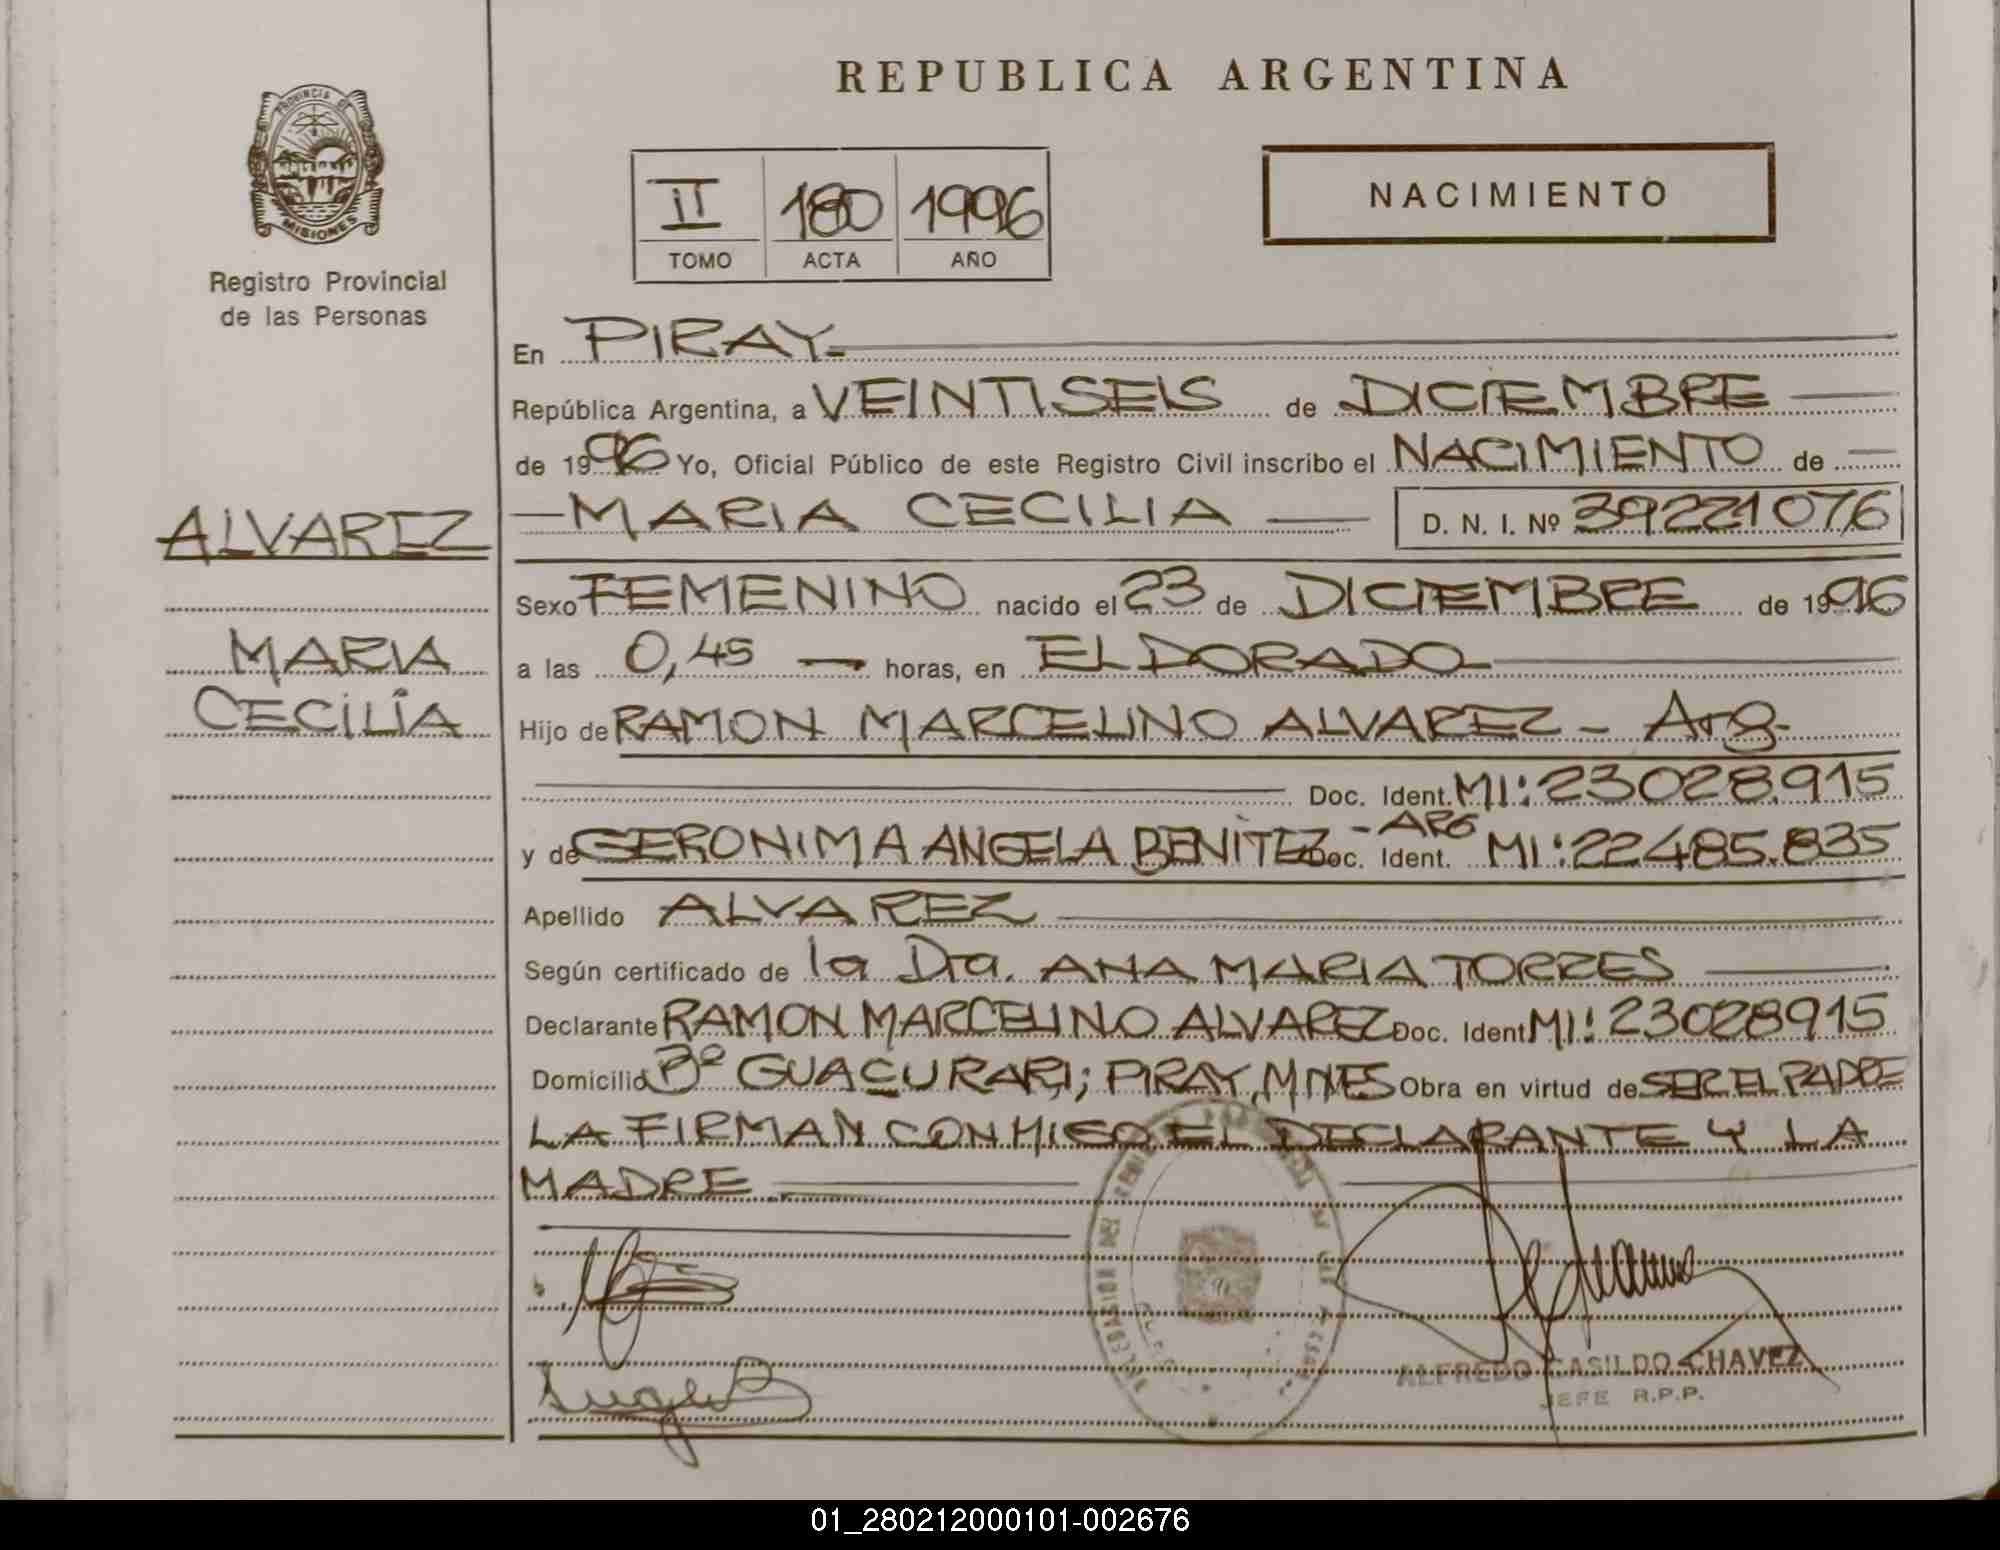 REPUBLICA ARGENTINA
PROVINCIA DE
MISIONES
Registro Provincial
de las Personas
II 180 1996
TOMO ACTA AÑO
NACIMIENTO
En PIRAY.
República Argentina, a VEINTISEIS de DICIEMBRE
de 1996 Yo, Oficial Público de este Registro Civil inscribo el NACIMIENTO de
MARIA CECILIA D. N. I. Nº 39221076
ALVAREZ
MARIA
CECILIA
Sexo FEMENINO nacido el 23 de DICIEMBRE de 1996
a las 0,45 horas, en ELDORADO
Hijo de RAMON MARCELINO ALVAREZ - Arg.
Doc. Ident. MI: 23028.915
y de GERONIMA ANGELA BENITEZ - ARG Doc. Ident. MI: 22485.835
Apellido ALVAREZ
Según certificado de la Dra. ANA MARIA TORRES
Declarante RAMON MARCELINO ALVAREZ Doc. Ident. MI: 23028915
Domicilio Bº GUACURARI; PIRAY, MNES Obra en virtud de SER EL PADRE
LA FIRMAN CONMIGO EL DECLARANTE Y LA
MADRE
ALFREDO CASILDO CHAVEZ
JEFE R.P.P.
01_280212000101-002676